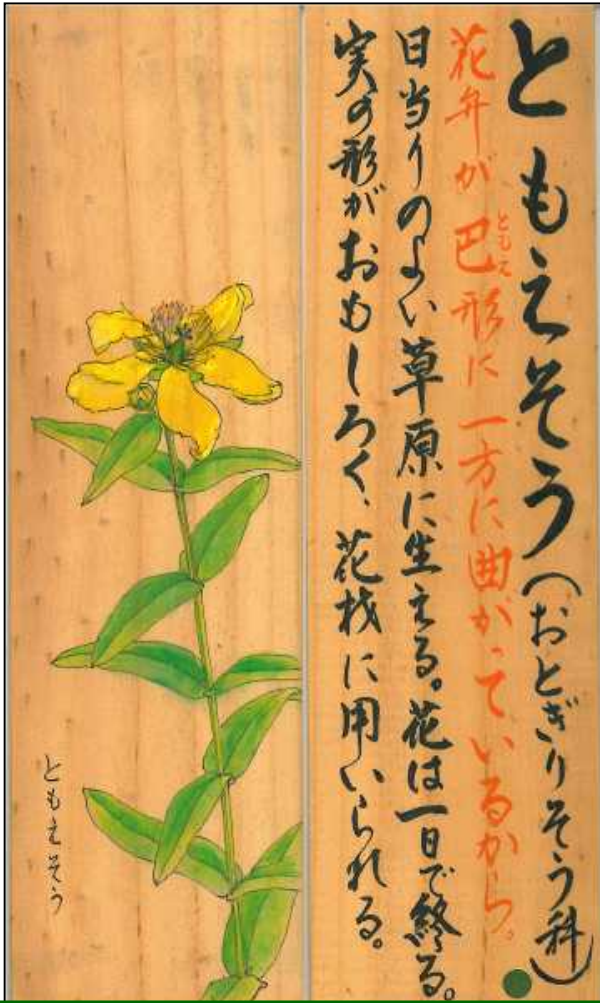 ともえそう(おとぎりそう科)
花弁が巴形に一方に曲がっているから。
ともえ
日当りのよい草原に生える。花は一日で終る。
実の形がおもしろく、花材に用いられる。
ともえそう